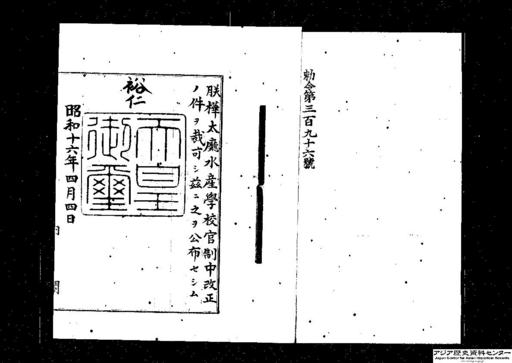 勅令第三百九十六號
朕樺太廳水産學校官制中改正
ノ件ヲ裁可シ茲ニ之ヲ公布セシム
裕仁
天皇御璽
昭和十六年四月四日
内閣
アジア歴史資料センター
Japan Center for Asian Historical Records